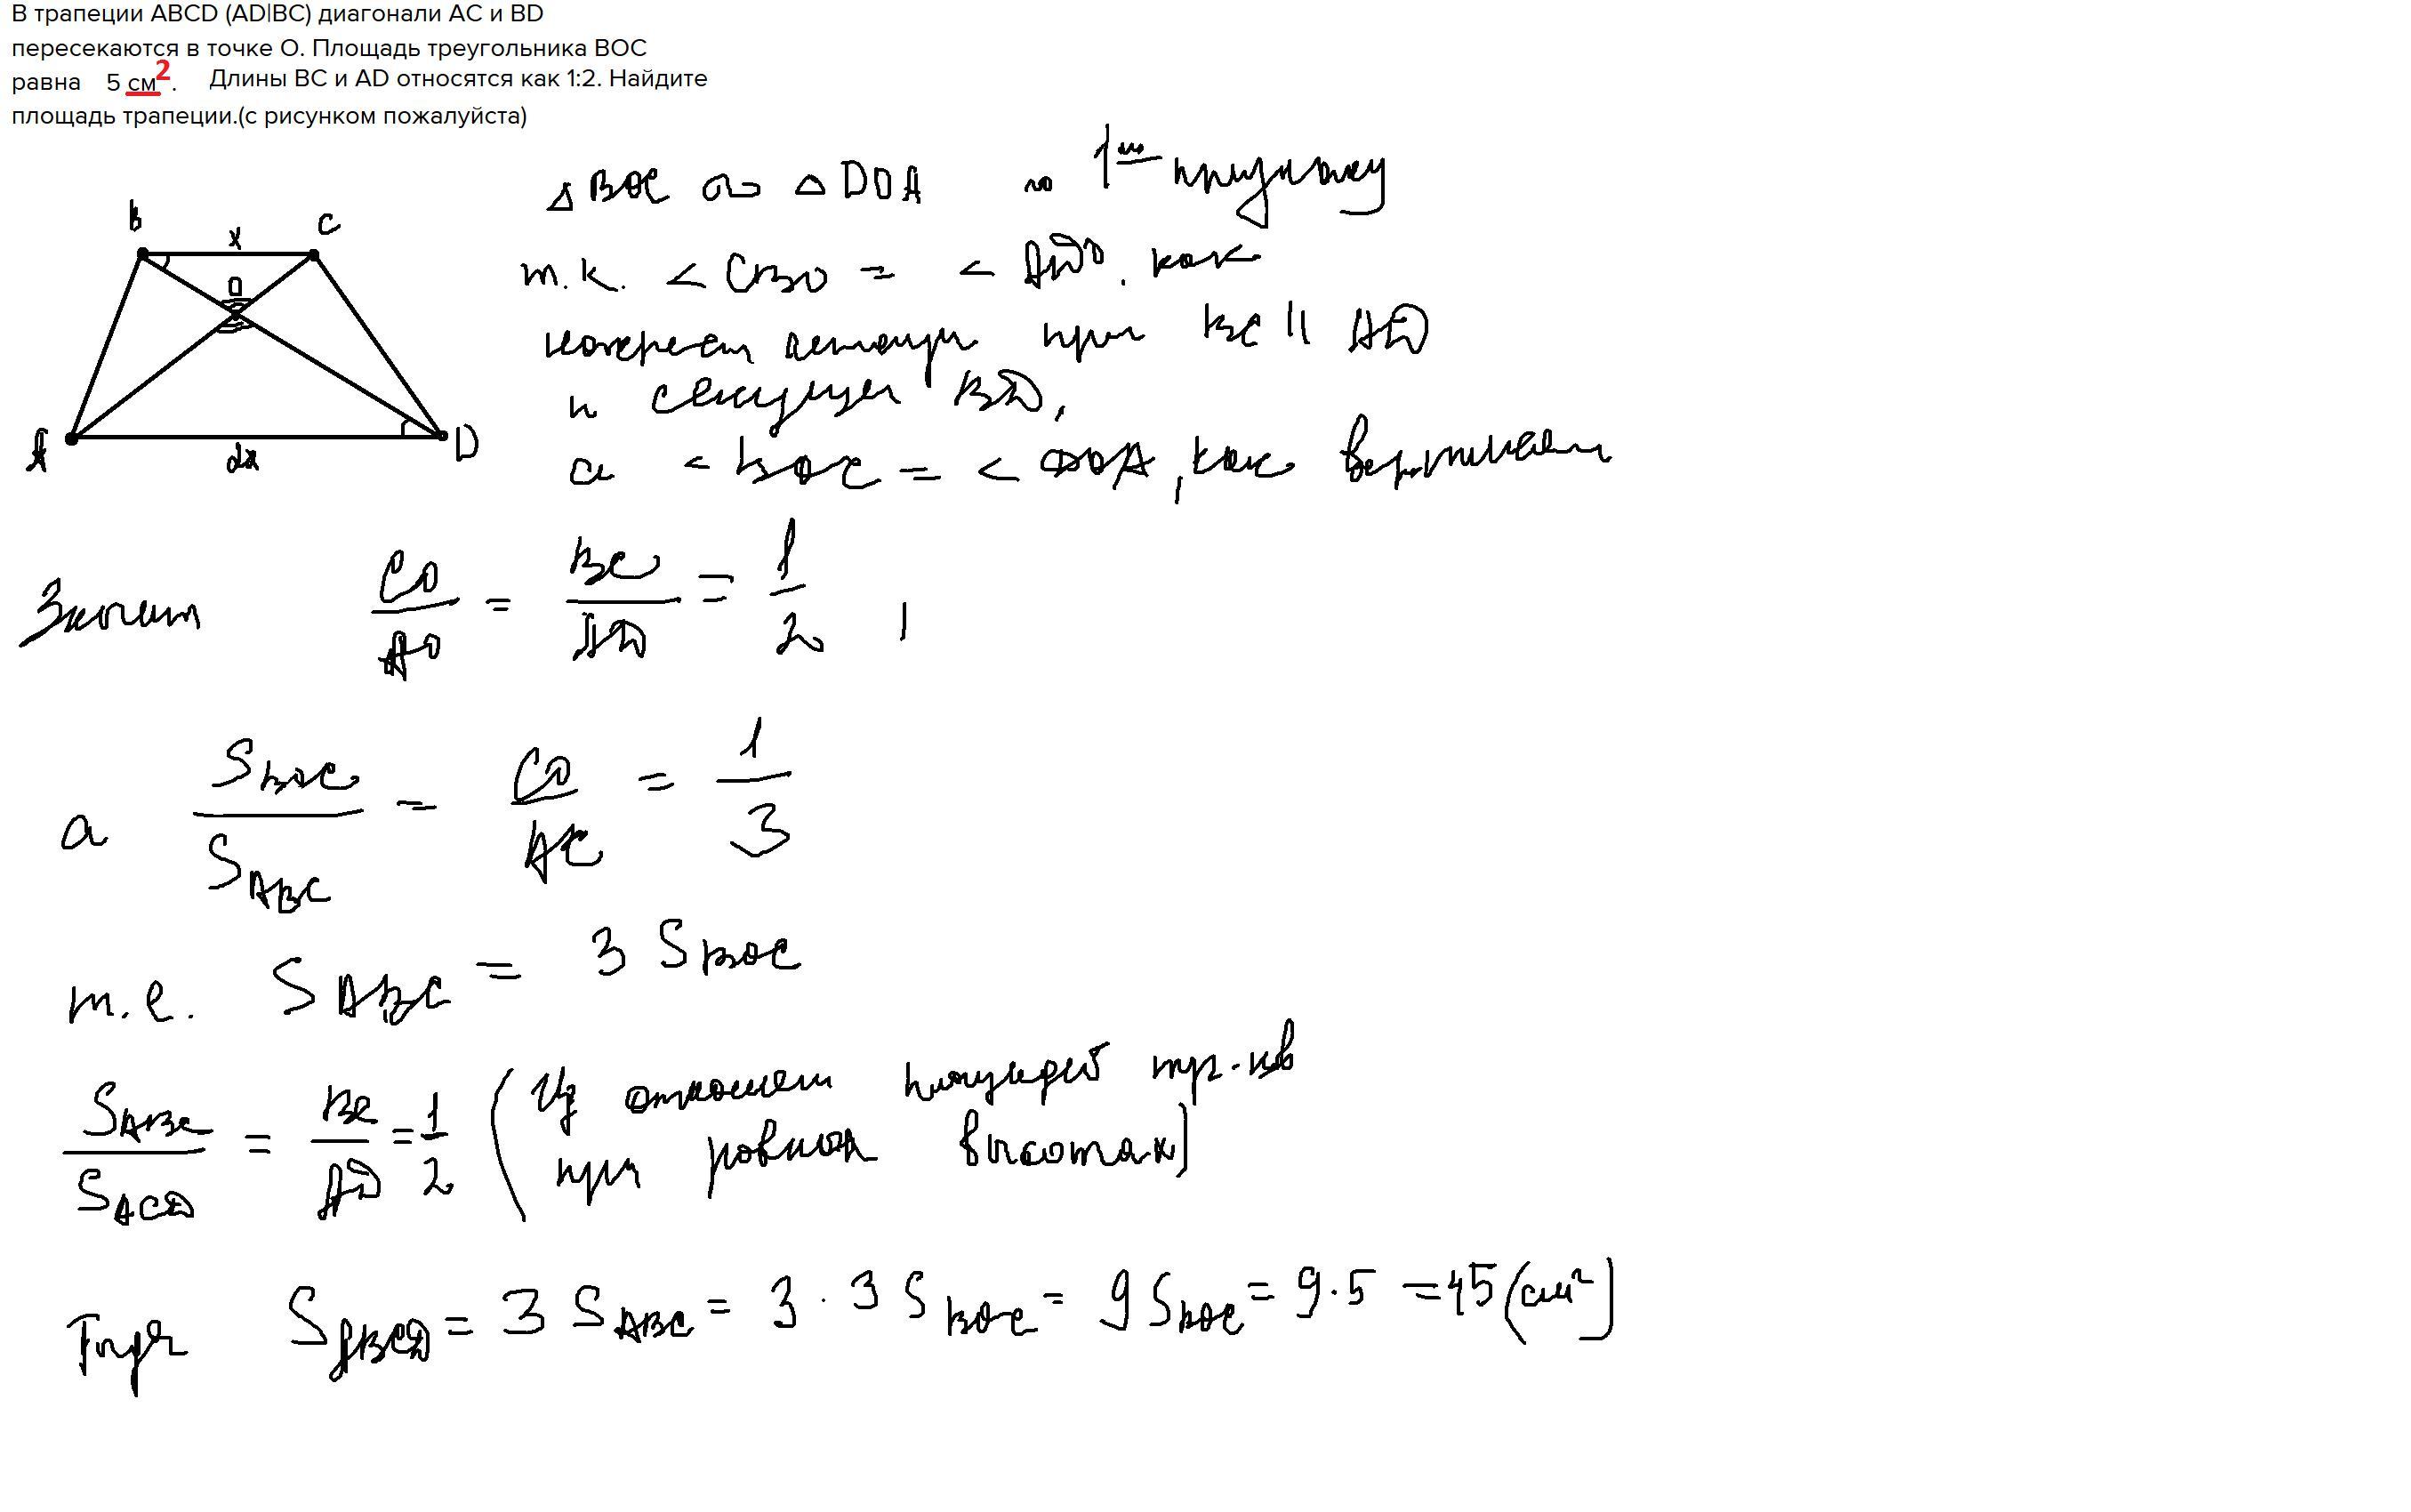 В трапеции ABCD (AD|BC) диагонали AC и BD
пересекаются в точке O. Площадь треугольника BOC
равна 5 см². Длины BC и AD относятся как 1:2. Найдите
площадь трапеции.(с рисунком пожалуйста)
B x C
O
A 2x D
△ BOC ∾ △ DOA по 1му признаку
т.к. < CBO = < ADO, как
накрест лежащи при BC || AD
и секущей BD,
а < BOC = < DOA, как вертикальн
Значит CO/AO = BC/AD = 1/2,
а S BOC / S ABC = CO/AC = 1/3
т.е. S ABC = 3 S BOC
S ABC / S ACD = BC/AD = 1/2 (Из отношен площадей тр-ков
при равных высотах)
Тогда S ABCD = 3 S ABC = 3 · 3 S BOC = 9 S BOC = 9 · 5 = 45 (см²)